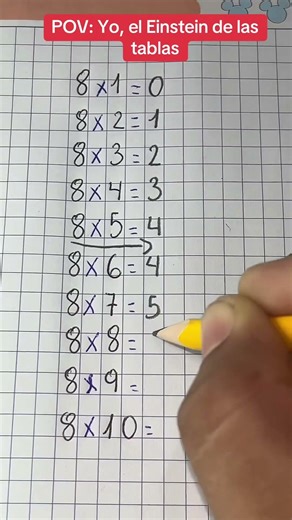 POV: Yo, el Einstein de las
tablas
8×1=0
8×2=1
8×3=2
8×4=3
8×5=4
8×6=4
8×7=5
8×8=
8×9=
8×10=